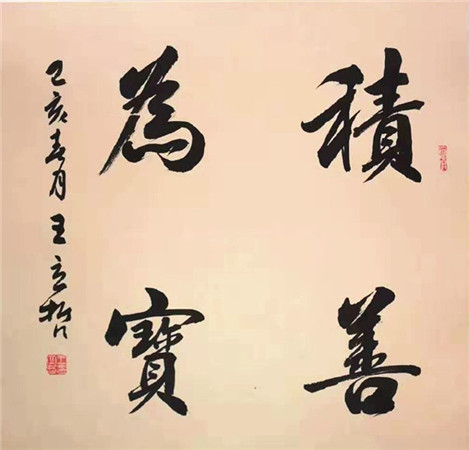 積善
為寶
己亥春月王立哲